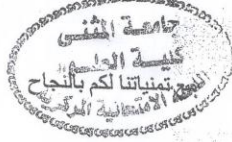 جامعة المثنى
كلية العلوم
مع تمنياتنا لكم بالنجاح
الامتحانية المركزية